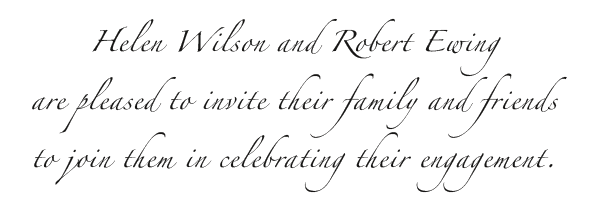 Helen Wilson and Robert Ewing
are pleased to invite their family and friends
to join them in celebrating their engagement.